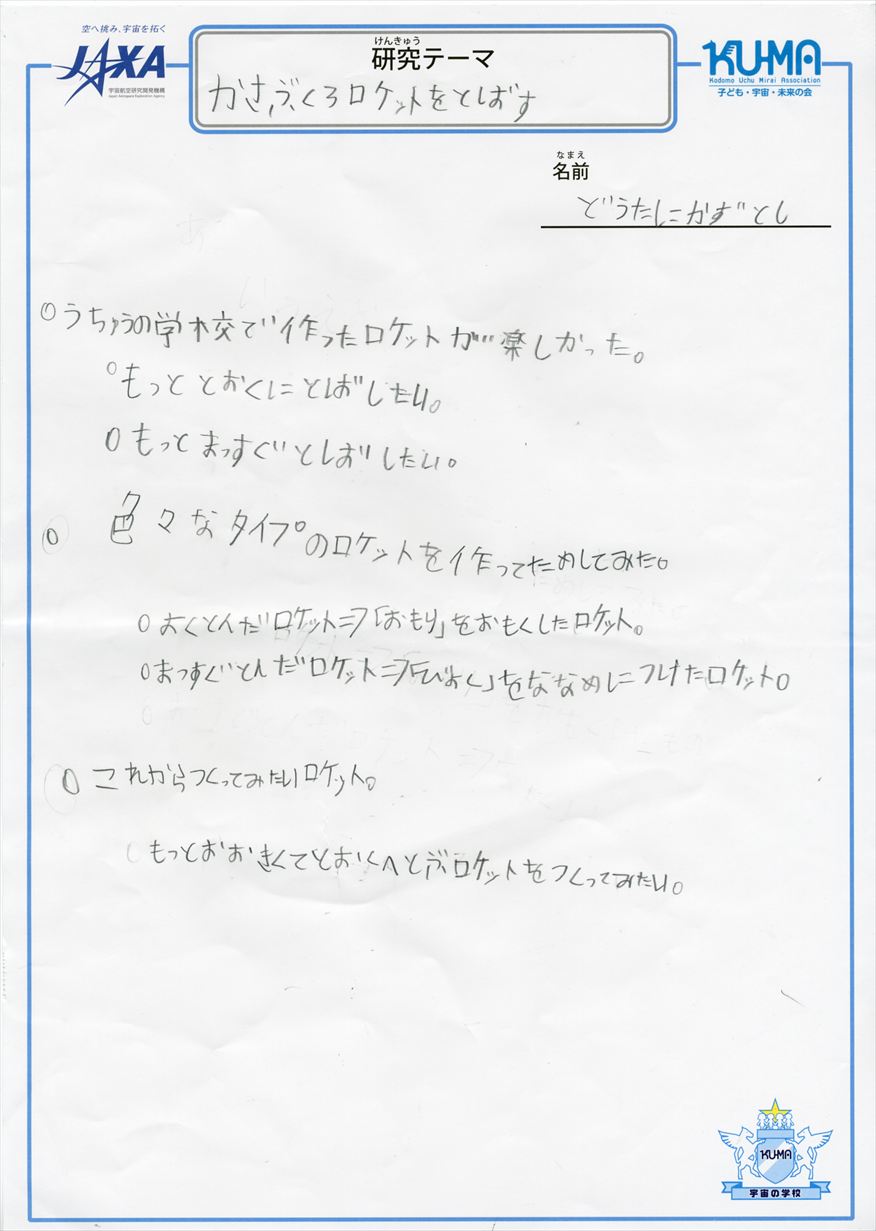 空へ挑み、宇宙を拓く
JAXA
宇宙航空研究開発機構
Japan Aerospace Exploration Agency
けんきゅう
研究テーマ
かさぶくろロケットをとばす
KU-MA
Kodomo Uchu Mirai Association
子ども・宇宙・未来の会
なまえ
名前
どうたにかずとし
○うちゅうの学校で作ったロケットが楽しかった。
○もっととおくにとばしたい。
○もっとまっすぐとばしたい。
○色々なタイプのロケットを作ってためしてみた。
○よくとんだロケット⇒「おもり」をおもくしたロケット。
○まっすぐとんだロケット⇒「びよく」をななめにつけたロケット。
○これからつくってみたいロケット。
○もっとおおきくてとおくへとぶロケットをつくってみたい。
KU-MA
宇宙の学校